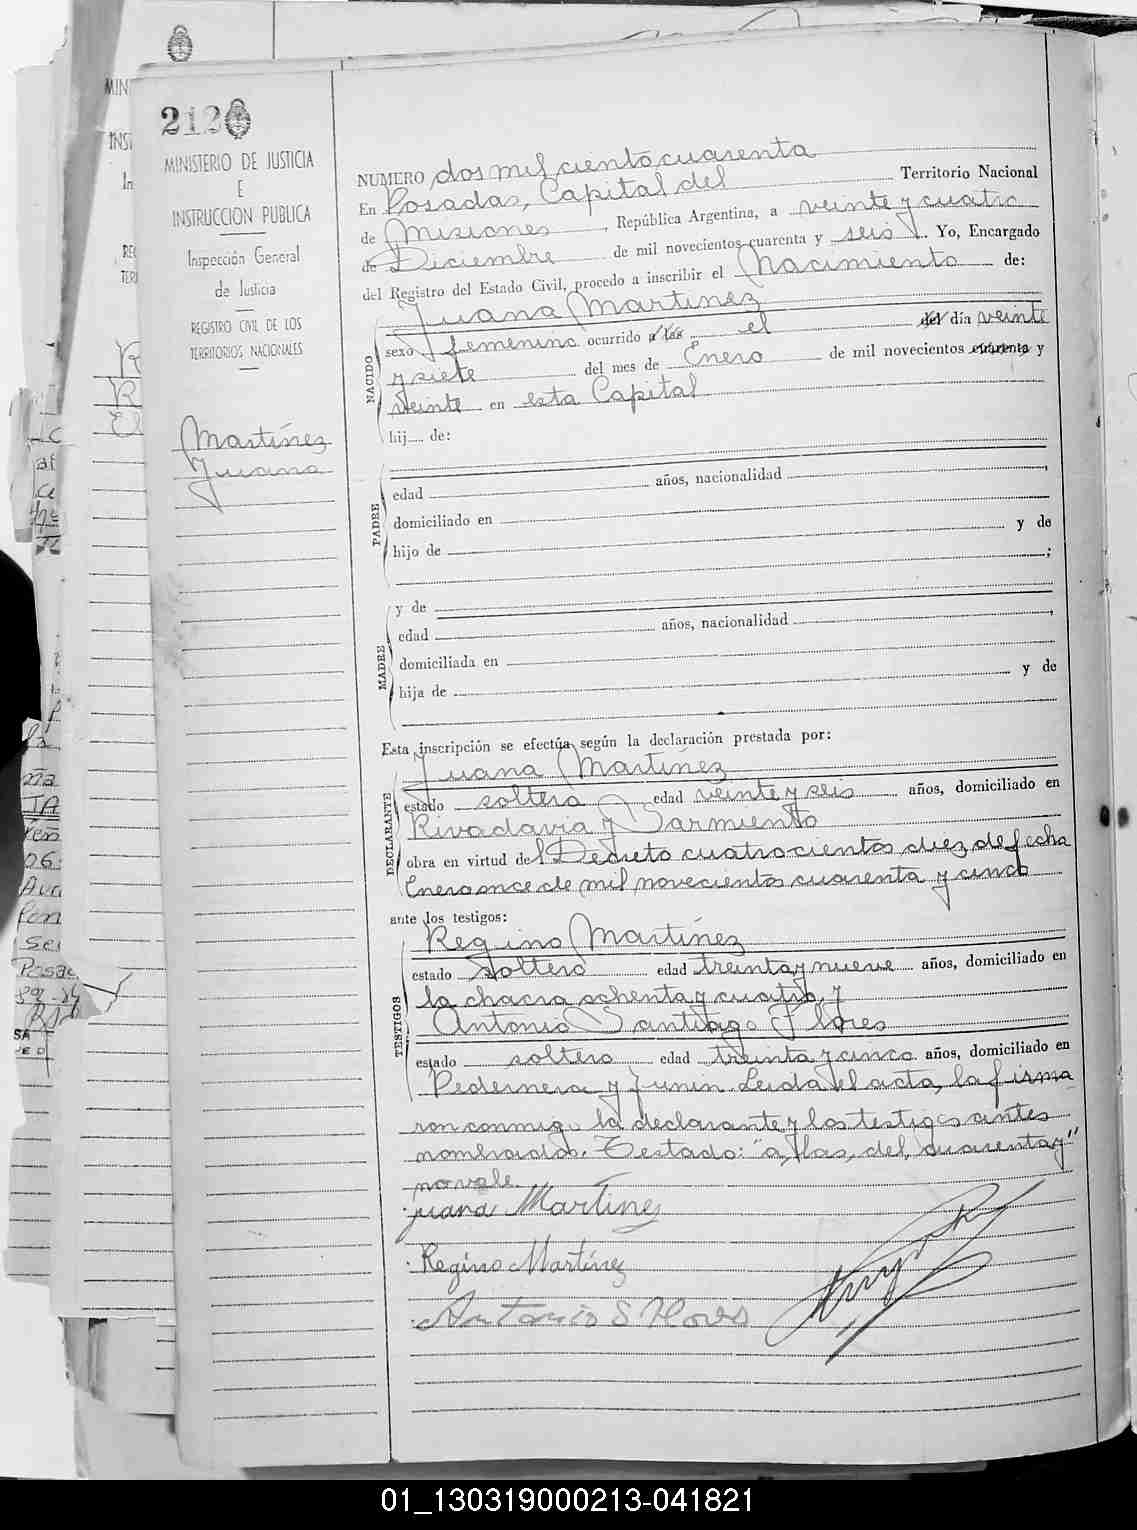 212
MINISTERIO DE JUSTICIA
E
INSTRUCCION PUBLICA
Inspección General
de Justicia
REGISTRO CIVIL DE LOS
TERRITORIOS NACIONALES
Martínez
Juana
NUMERO dos mil ciento cuarenta
En Posadas, Capital del Territorio Nacional
de Misiones, República Argentina, a veinte y cuatro
de Diciembre de mil novecientos cuarenta y seis. Yo, Encargado
del Registro del Estado Civil, procedo a inscribir el Nacimiento de:
NACIDO
Juana Martínez
sexo femenino ocurrido a las el del día veinte
y siete del mes de Enero de mil novecientos cuarenta y
veinte en esta Capital
hij de:
PADRE
edad años, nacionalidad
domiciliado en
hijo de y de
;
MADRE
y de
edad años, nacionalidad
domiciliada en
hija de y de
Esta inscripción se efectúa según la declaración prestada por:
DECLARANTE
Juana Martínez
estado soltera edad veinte y seis años, domiciliado en
Rivadavia y Sarmiento
obra en virtud del Decreto cuatrocientos diez de fecha
Enero once de mil novecientos cuarenta y cinco
ante los testigos:
TESTIGOS
Regino Martínez
estado soltero edad treinta y nueve años, domiciliado en
la chacra ochenta y cuatro, y
Antonio Santiago Flores
estado soltero edad treinta y cinco años, domiciliado en
Pedernera y Junin Leida el acta, la firma
ron conmigo la declarante y los testigos antes
nombrados. Testado: "a, las, del, cuarenta y"
no vale.
juana Martínez
Regino Martínez
Antonio S Flores
01_130319000213-041821